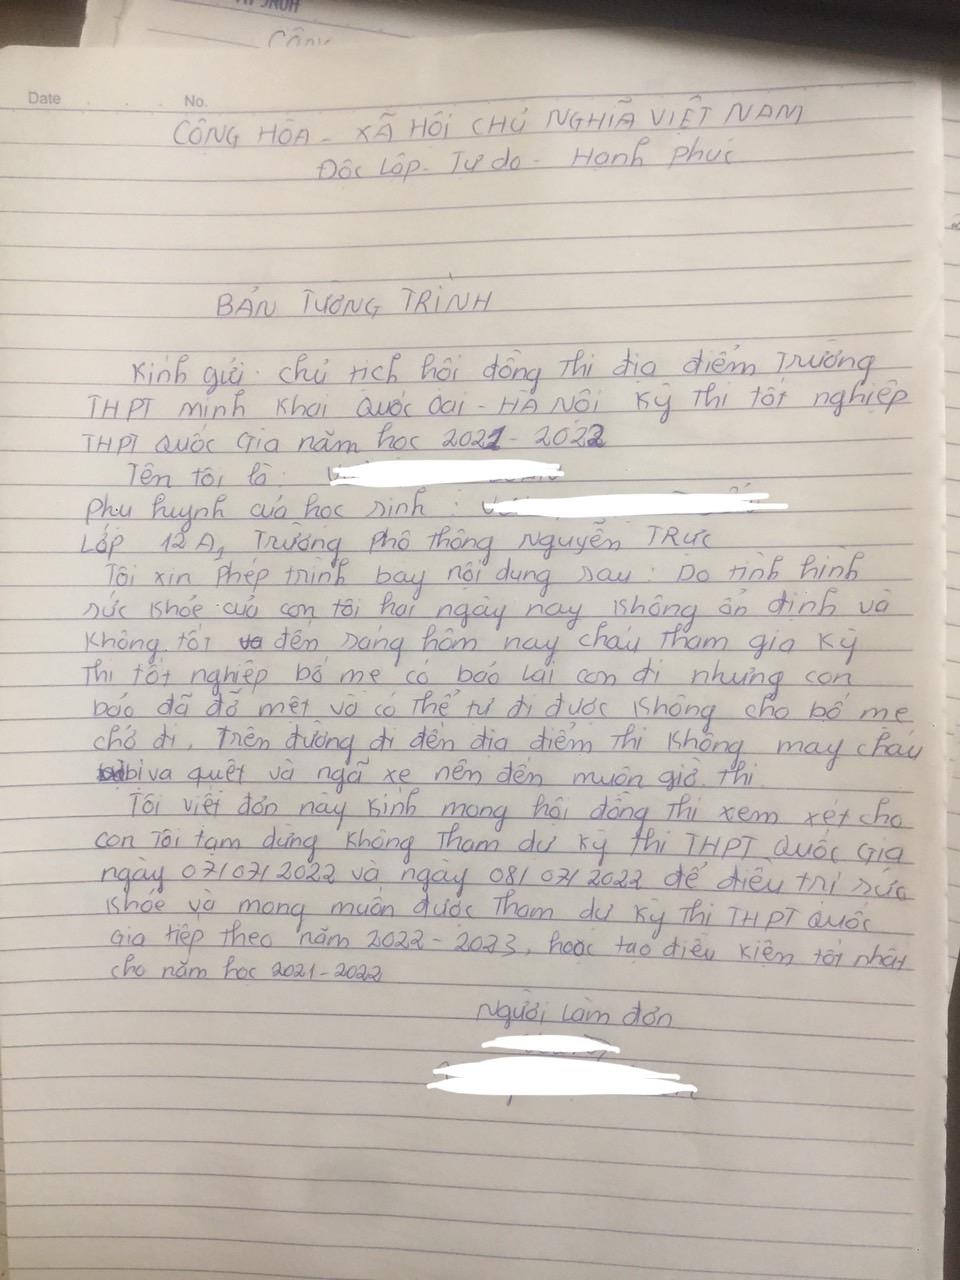 Date No.
CỘNG HÒA - XÃ HỘI CHỦ NGHĨA VIỆT NAM
Độc Lập - Tự do - Hạnh phúc
BẢN TƯỜNG TRÌNH
Kính gửi: chủ tịch hội đồng thi địa điểm Trường
THPT minh Khai Quốc Oai - HÀ NỘI Kỳ thi tốt nghiệp
THPT Quốc Gia năm học 2021 - 2022
Tên tôi là:
phụ huynh của học sinh:
Lớp 12A1 Trường phổ thông Nguyễn TRực
Tôi xin phép trình bày nội dung sau: Do tình hình
sức khỏe của con tôi hai ngày nay không ổn định và
không tốt đến sáng hôm nay cháu tham gia kỳ
thi tốt nghiệp bố mẹ có bảo lai con đi nhưng con
bảo đã đỡ mệt và có thể tự đi được không cho bố mẹ
chở đi, trên đường đi đến địa điểm thi không may cháu
bị va quệt và ngã xe nên đến muộn giờ thi.
Tôi viết đơn này kính mong hội đồng thi xem xét cho
con tôi tạm dừng không tham dự kỳ thi THPT Quốc Gia
ngày 07/07/2022 và ngày 08/07/2022 để điều trị sức
khỏe và mong muốn được tham dự kỳ thi THPT Quốc
Gia tiếp theo năm 2022 - 2023, hoặc tạo điều kiện tốt nhất
cho năm học 2021 - 2022
Người làm đơn